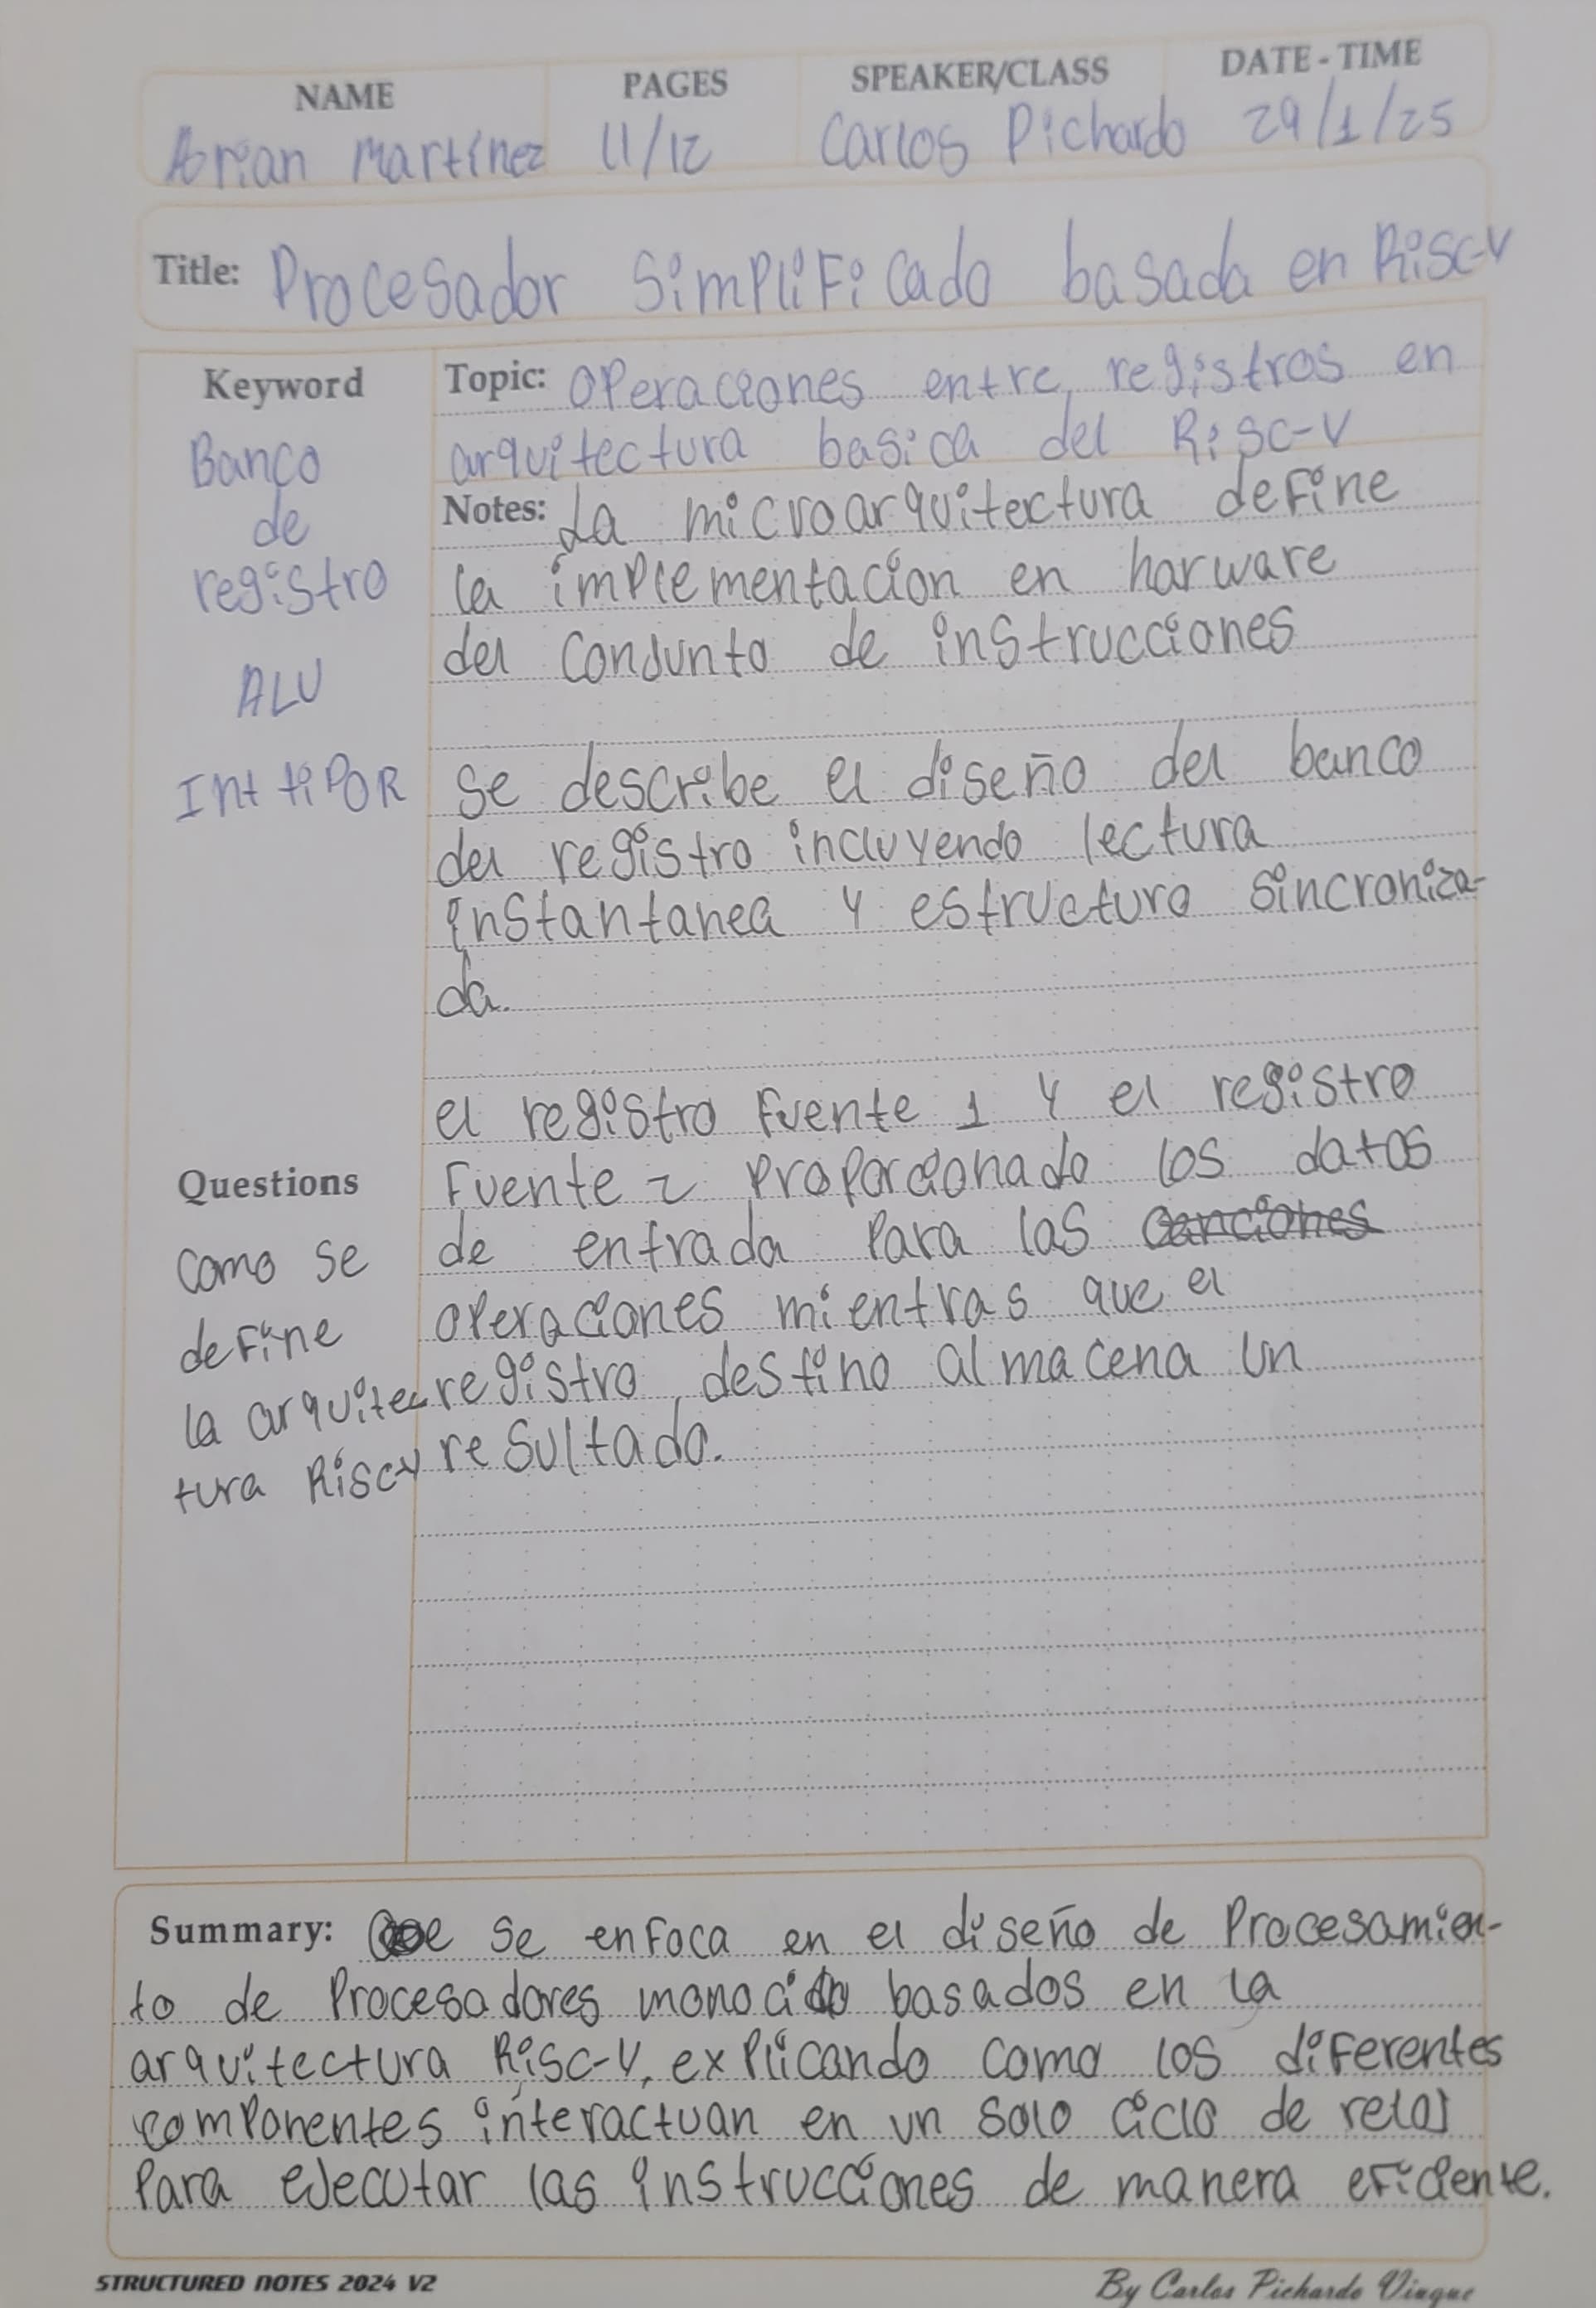 NAME PAGES SPEAKER/CLASS DATE - TIME
Arian Martínez 11/12 Carlos Pichardo 29/1/25
Title: Procesador Simplificado basada en Risc-V
Keyword
Banco
de
registro
ALU
Int tipo R
Topic: Operaciones entre registros en
arquitectura basica del Risc-V
Notes: La microarquitectura define
la implementacion en harware
del conjunto de instrucciones
Se describe el diseño del banco
del registro incluyendo lectura
instantanea y estructura sincroniza-
da.
el registro fuente 1 y el registro
fuente 2 proporcionado los datos
de entrada para las canciones
operaciones mientras que el
registro destino almacena un
resultado.
Questions
Como se
define
la arquitec
tura Risc-V
Summary: Se enfoca en el diseño de Procesamien-
to de Procesadores basados en la
arquitectura Risc-V, explicando como los diferentes
componentes interactuan en un solo ciclo de reloj
Para ejecutar las instrucciones de manera eficiente.
STRUCTURED NOTES 2024 V2
By Carlos Pichardo Viuque